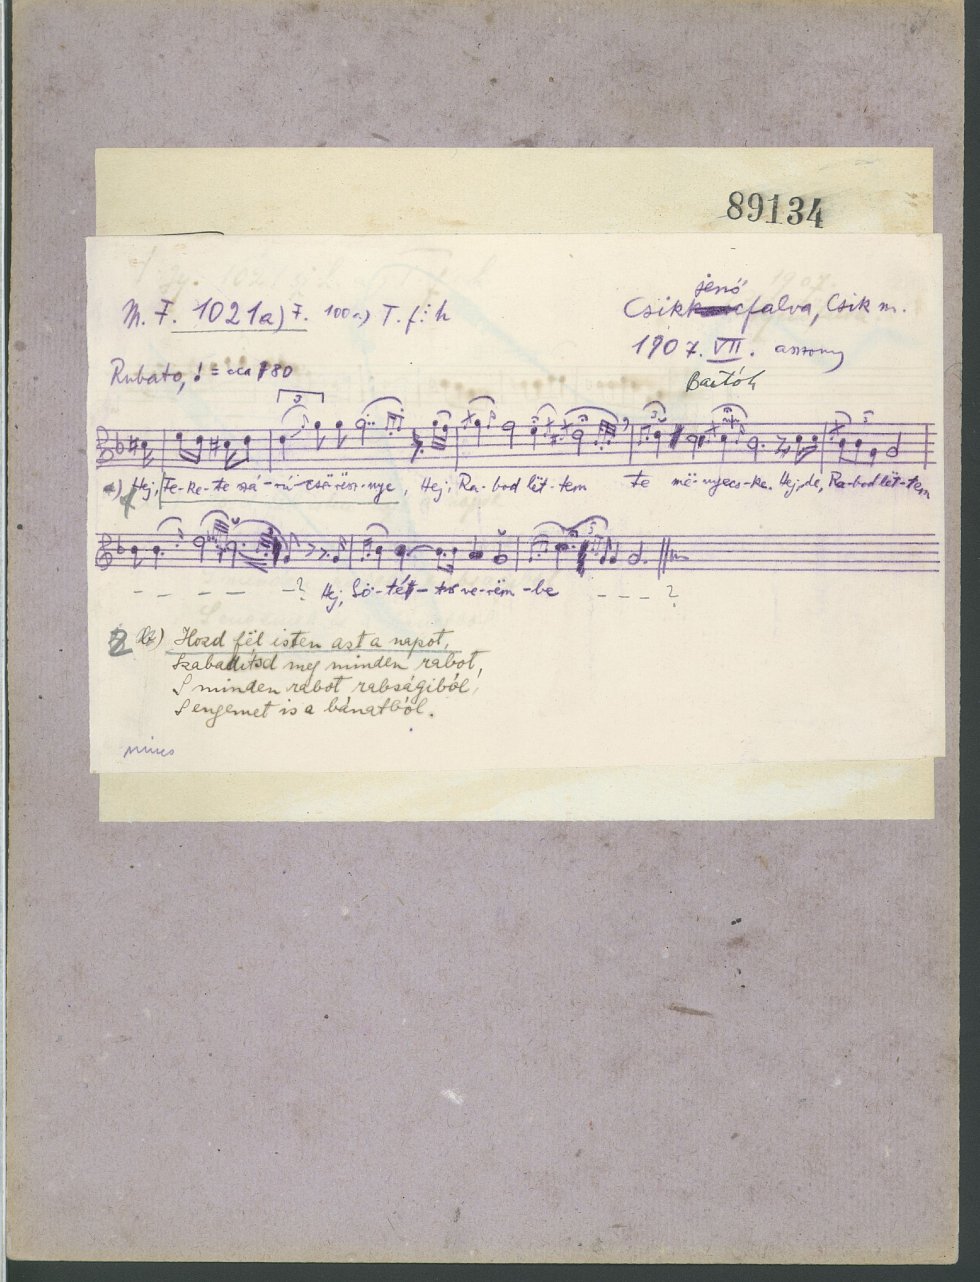 89134
M. F. 1021a) F. 100a) T. f:h
jenő
Csik falva, Csik m.
1907. VII. asszony
Bartók
Rubato, = cca 180
3
Hej, Fe-ke-te szá-rú-cse-resz-nye, Hej, Ra-bod lët-tem te më-nyecs-ke. Hej, de, Ra-bod lët-tem
- - - - -? Hej, Sö-tét- ve-rëm-be - - - ?
2 Hozd fël isten azt a napot,
Szabadítsd meg minden rabot,
S minden rabot rabságiból,
S engemet is a bánatból.